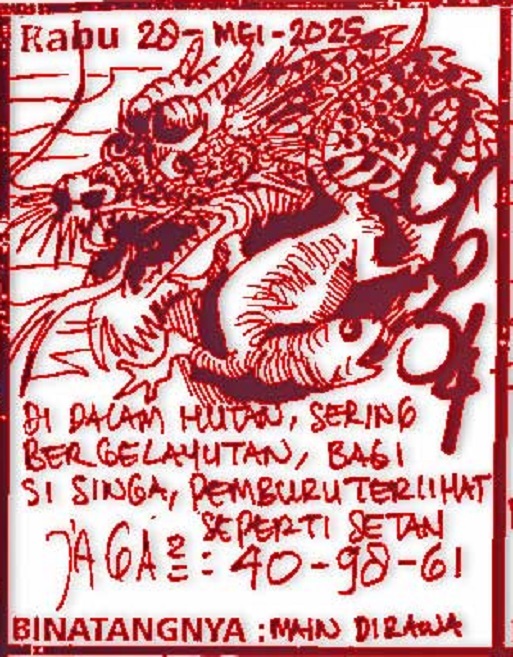 Rabu 28 - MEI - 2025
DI DALAM HUTAN, SERING
BERGELAYUTAN, BAGI
SI SINGA, PEMBURU TERLIHAT
SEPERTI SETAN
JAGA2 : 40-98-61
BINATANGNYA : MAIN DIRAWA